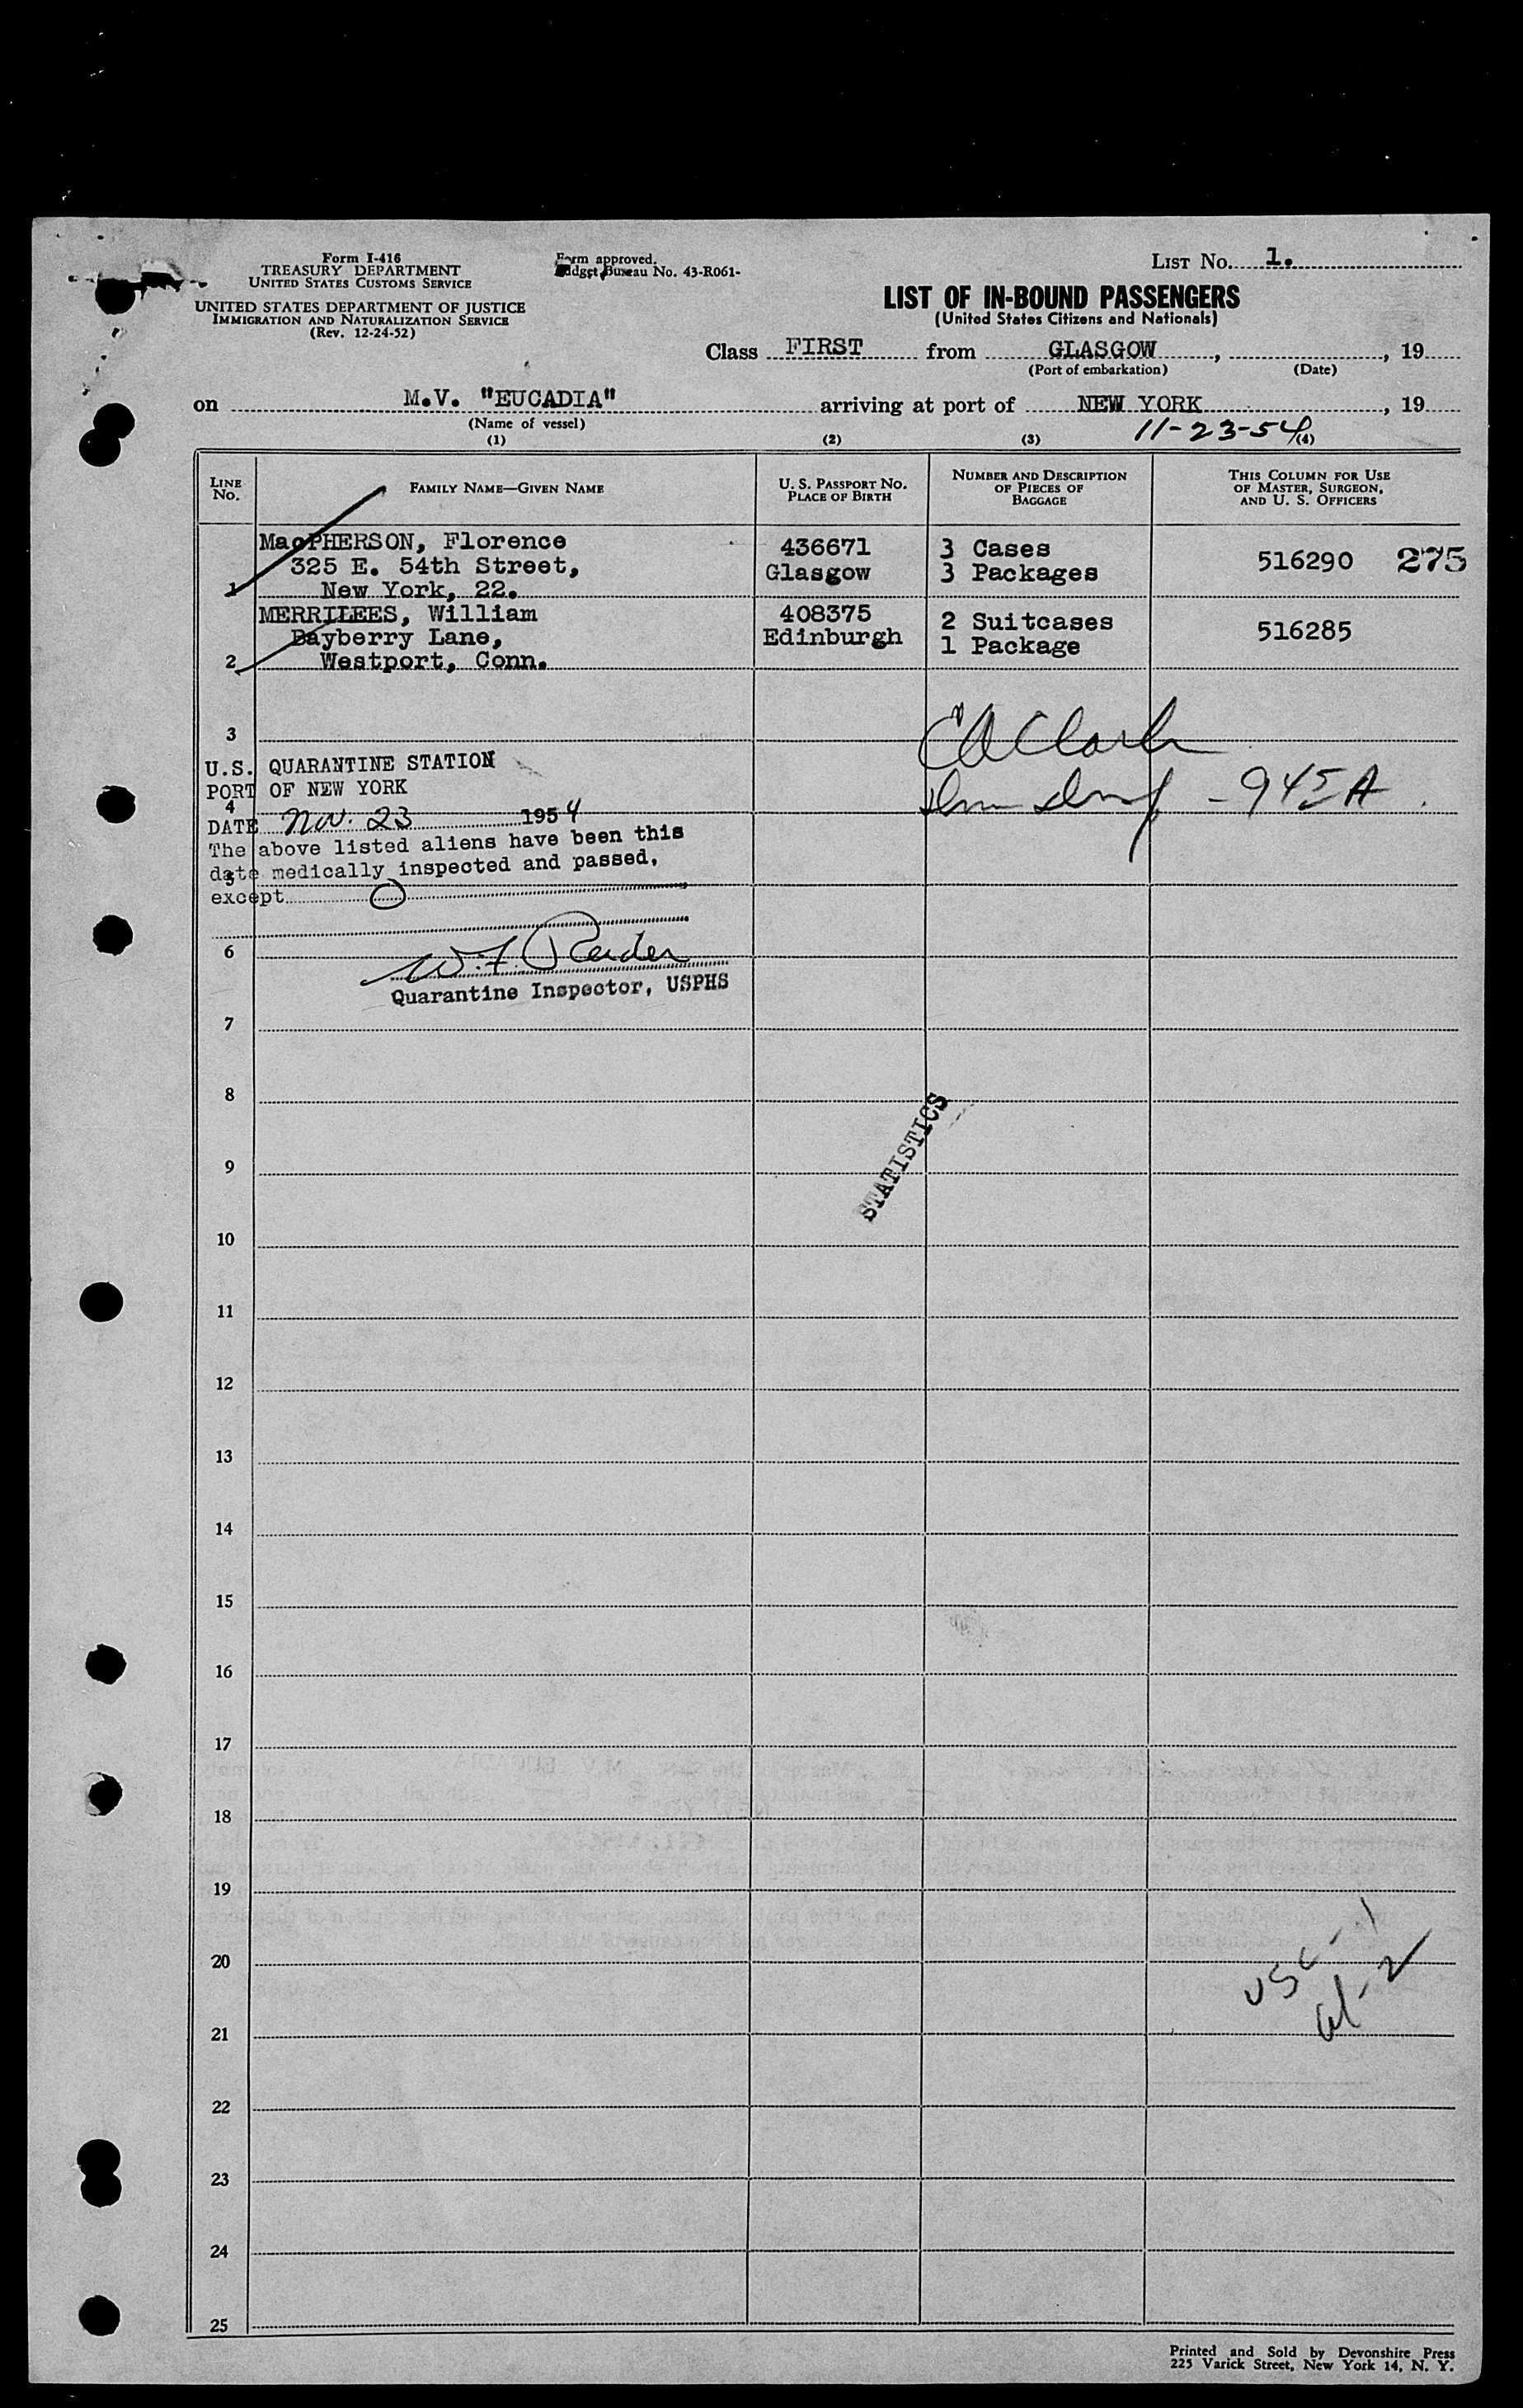 Form I-416
TREASURY DEPARTMENT
UNITED STATES CUSTOMS SERVICE
UNITED STATES DEPARTMENT OF JUSTICE
IMMIGRATION AND NATURALIZATION SERVICE
(Rev. 12-24-52)
Form approved.
Budget Bureau No. 43-R061-
LIST NO. 1.
LIST OF IN-BOUND PASSENGERS
(United States Citizens and Nationals)
Class FIRST from GLASGOW , , 19
(Port of embarkation) (Date)
on M.V. "EUCADIA" arriving at port of NEW YORK , 19
(Name of vessel)
11-23-54
(1) (2) (3) (4)
LINE NO. FAMILY NAME—GIVEN NAME U. S. PASSPORT NO. PLACE OF BIRTH NUMBER AND DESCRIPTION OF PIECES OF BAGGAGE THIS COLUMN FOR USE OF MASTER, SURGEON, AND U. S. OFFICERS
MacPHERSON, Florence 436671 3 Cases 516290 275
325 E. 54th Street, Glasgow 3 Packages
1 New York, 22.
MERRILEES, William 408375 2 Suitcases 516285
Bayberry Lane, Edinburgh 1 Package
2 Westport, Conn.
3 Clark
U.S. QUARANTINE STATION
PORT OF NEW YORK - 945 A
4
DATE Nov. 23 1954
The above listed aliens have been this
date medically inspected and passed,
5
except O
6
W.F.
Quarantine Inspector, USPHS
7
8
STATISTICS
9
10
11
12
13
14
15
16
17
18
19
20
USC - 1
al - 2
21
22
23
24
25
Printed and Sold by Devonshire Press
225 Varick Street, New York 14, N. Y.